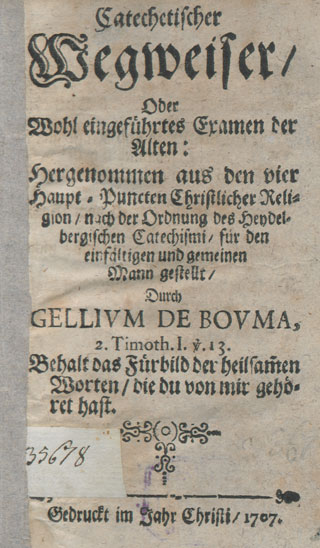 Catechetischer
Wegweiser/
Oder
Wohl eingeführtes Examen der
Alten:
Hergenommen aus den vier
Haupt-Puncten Christlicher Reli-
gion/ nach der Ordnung des Heydel-
bergischen Catechismi/ für den
einfältigen und gemeinen
Mann gestellt/
Durch
GELLIVM DE BOVMA,
2. Timoth. I. ℣. 13.
Behalt das Fürbild der heilsam̄en
Worten/ die du von mir gehö-
ret hast.
35678
Gedruckt im Jahr Christi/ 1707.